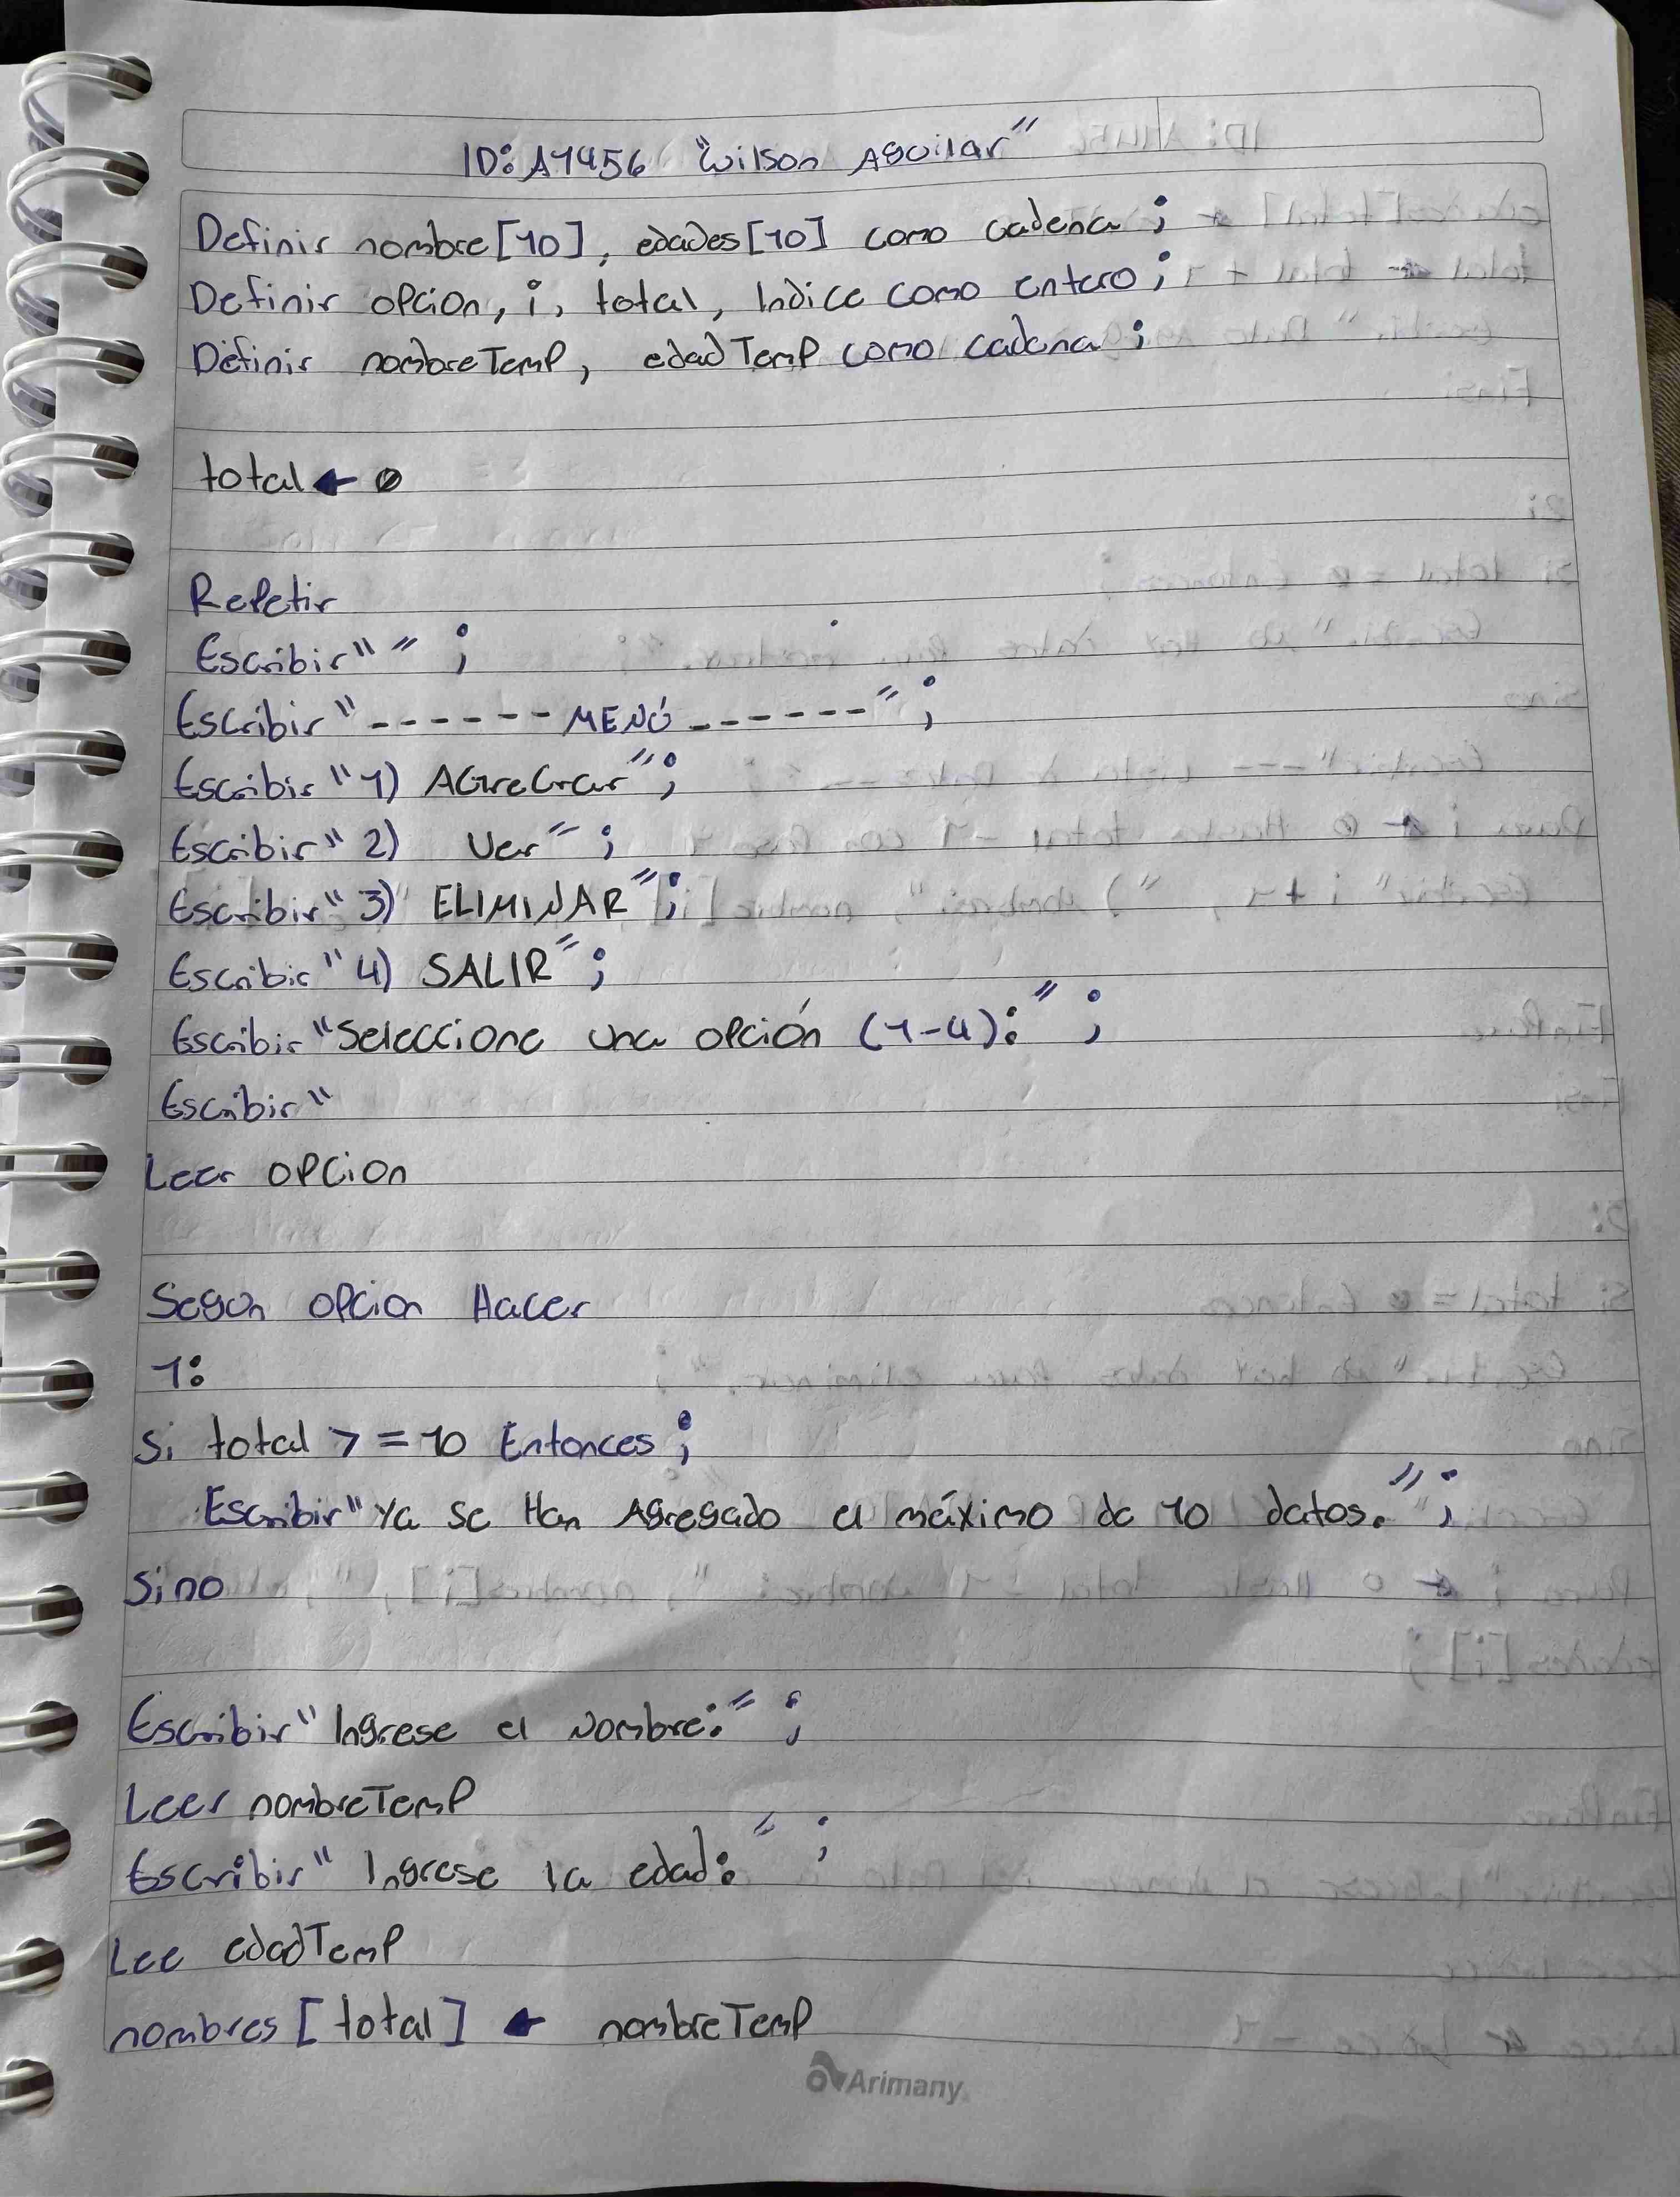 ID: A1456 "Wilson Aguilar"
Definir nombre[10], edades[10] como cadena;
Definir opcion, i, total, Indice como entero;
Definir nombreTemp, edadTemp como cadena;
total ← 0
Repetir
Escribir" " ;
Escribir"------MENÚ------";
Escribir "1) AGreGar";
Escribir "2) Ver";
Escribir "3) ELIMINAR";
Escribir "4) SALIR";
Escribir "Seleccione una opción (1-4):" ;
Escribir"
Leer opcion
Segun opcion Hacer
1:
Si total >= 10 Entonces;
Escribir" Ya se Han Agregado el máximo de 10 datos.";
Sino
Escribir "Ingrese el Nombre:" ;
Leer nombreTemp
Escribir" Ingrese la edad:" ;
Lee edadTemp
nombres [total] ← nombreTemp
Arimany